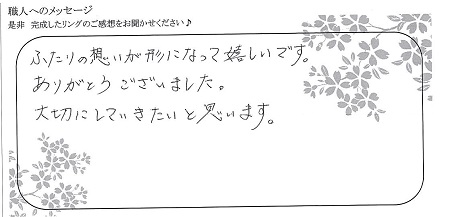 職人へのメッセージ
是非 完成したリングのご感想をお聞かせください♪
ふたりの想いが形になって嬉しいです。
ありがとうございました。
大切にしていきたいと思います。